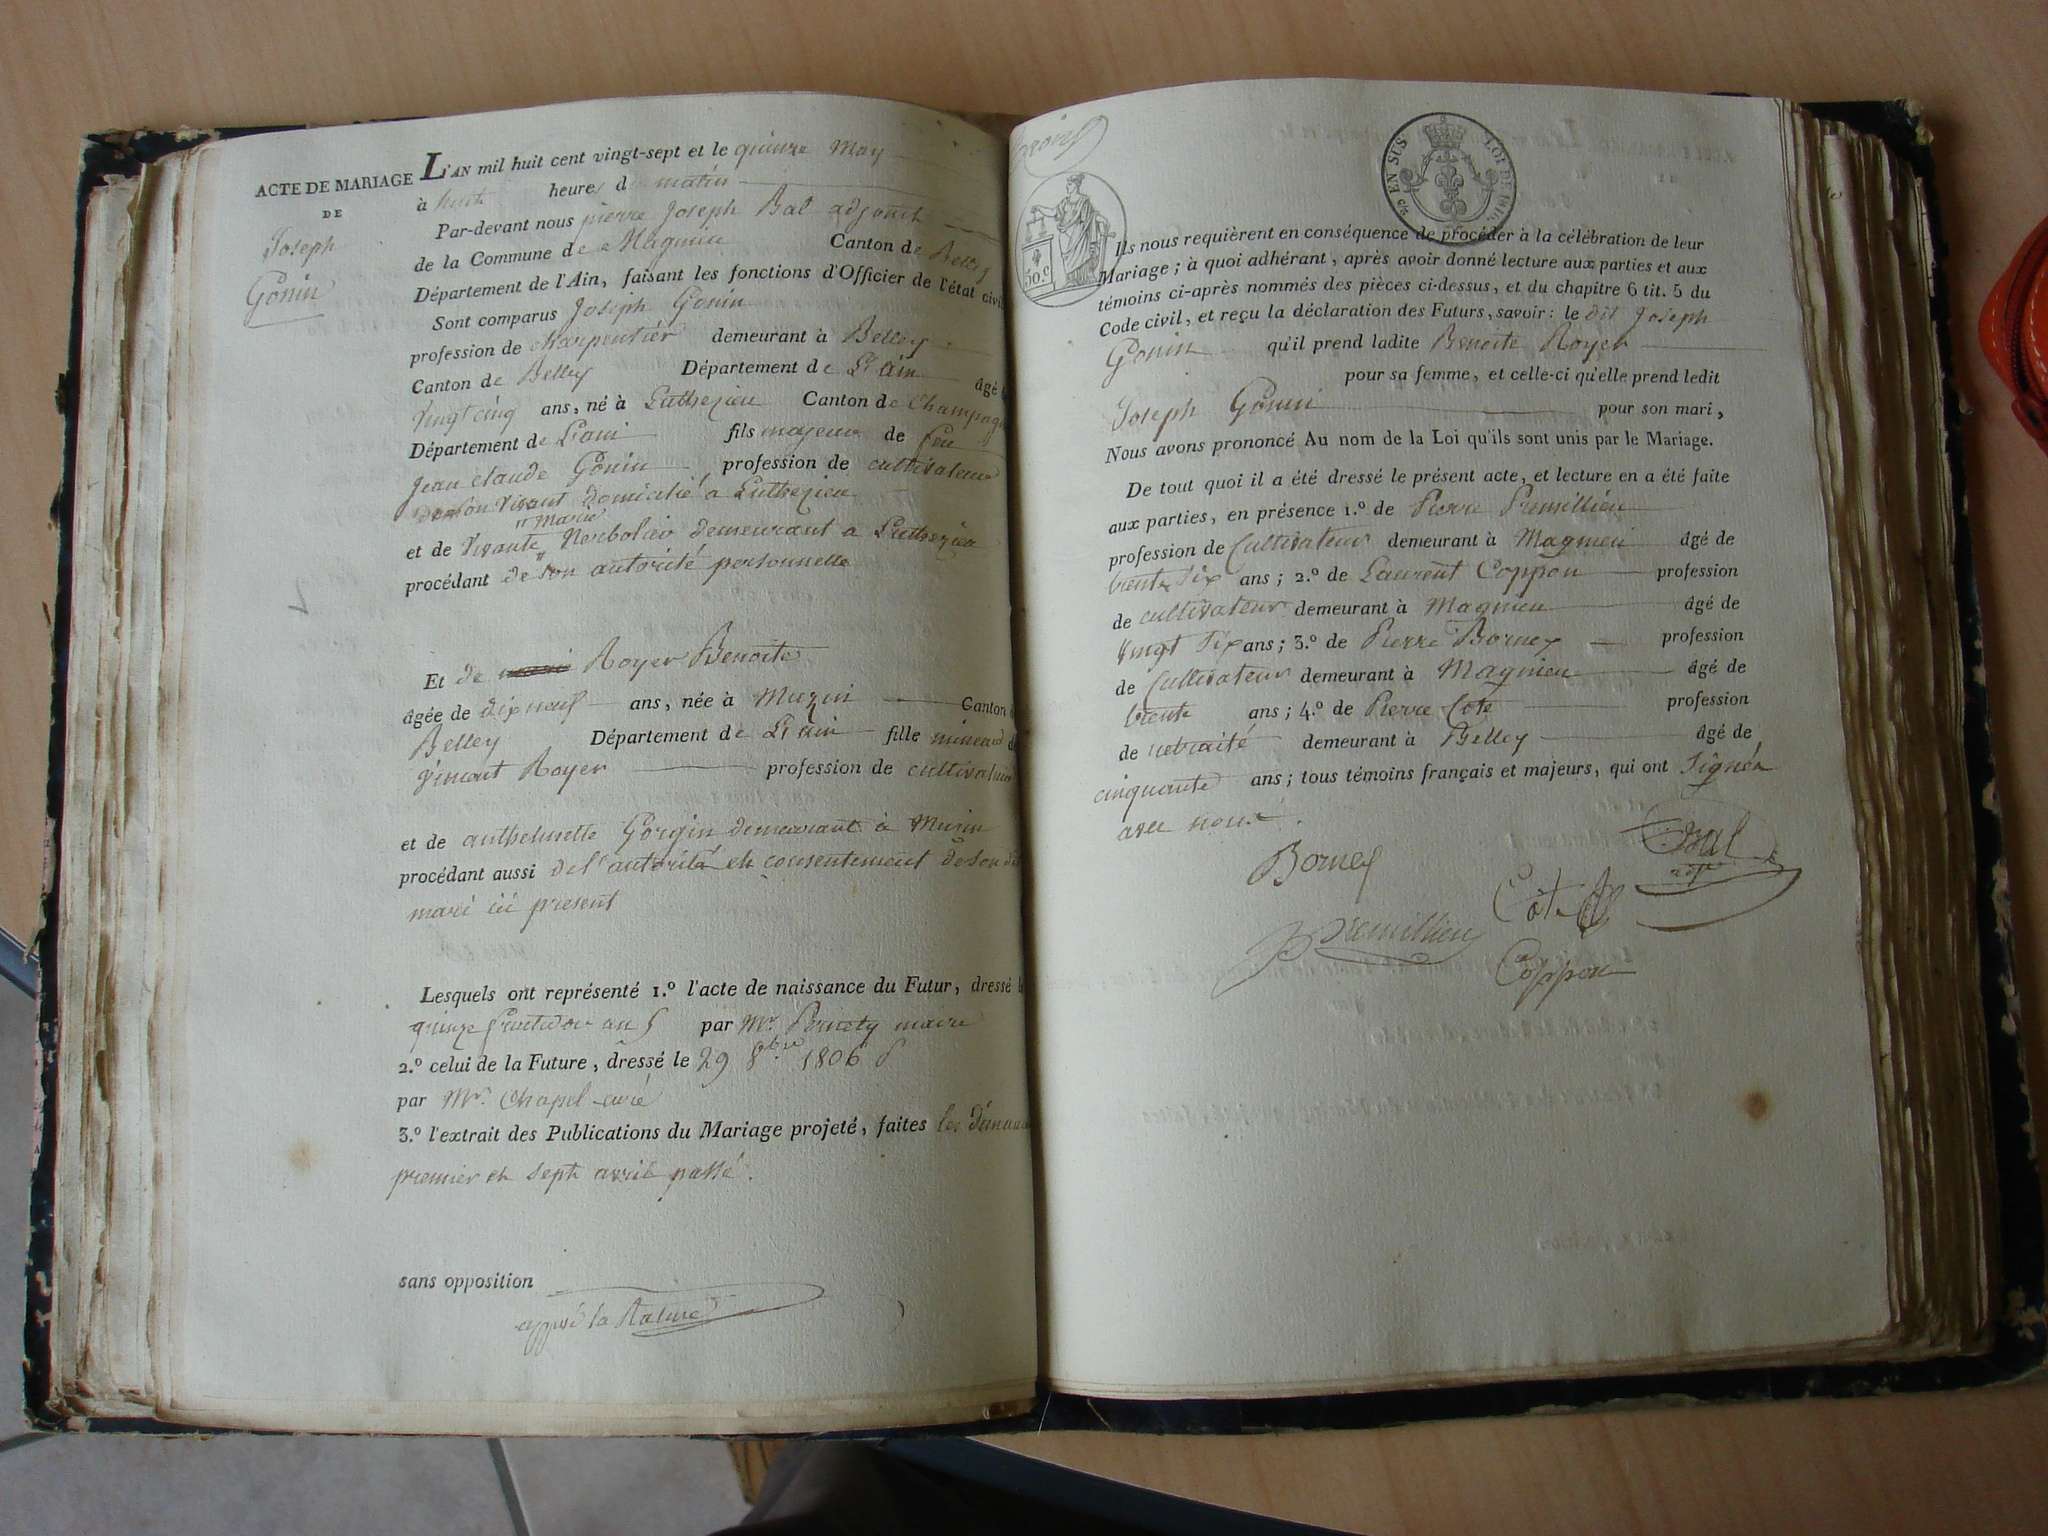 ACTE DE MARIAGE
DE
Joseph
Gonin
L'AN mil huit cent vingt-sept et le quinze May
à huit heures d matin
Par-devant nous pierre Joseph Bal adjoint
de la Commune de Magnieu Canton de Belley
Département de l'Ain, faisant les fonctions d'Officier de l'état civil
Sont comparus Joseph Gonin
profession de charpentier demeurant à Belley
Canton de Belley Département de L'ain âgé
vingt cinq ans, né à Luthezieu Canton de Champagne
Département de L'ain fils majeur de feu
jean claude Gonin profession de cultivateur
de son vivant domicilié a Luthezieu
Marie
et de vivante demeurant a Luthezieu
procédant de son autorité personnelle
Et de Royer Benoite
âgée de dix neuf ans, née à Muzin Canton d
Belley Département de L'ain fille mineur d
vincent Royer profession de cultivateur
et de anthelmette Gorgin demeurant à Muzin
procédant aussi de l'autorité et consentement de son dit
mari ici present
Lesquels ont représenté 1.º l'acte de naissance du Futur, dressé l
quinze fructidor an 5 par Mr. Pernety maire
2.º celui de la Future, dressé le 29 8bre 1806
par Mr. Chapel curé
3.º l'extrait des Publications du Mariage projeté, faites les dimanch
premier et sept avril passé.
sans opposition
la Rature
50 c.
EN SUS
LOI DE 1816
Ils nous requièrent en conséquence de procéder à la célébration de leur
Mariage; à quoi adhérant, après avoir donné lecture aux parties et aux
témoins ci-après nommés des pièces ci-dessus, et du chapitre 6 tit. 5 du
Code civil, et reçu la déclaration des Futurs, savoir: le dit Joseph
Gonin qu'il prend ladite Benoite Royer
pour sa femme, et celle-ci qu'elle prend ledit
Joseph Gonin pour son mari,
Nous avons prononcé Au nom de la Loi qu'ils sont unis par le Mariage.
De tout quoi il a été dressé le présent acte, et lecture en a été faite
aux parties, en présence 1.º de Pierre Premillieu
profession de Cultivateur demeurant à Magnieu âgé de
trente six ans; 2.º de Laurent Coppon profession
de cultivateur demeurant à Magnieu âgé de
vingt six ans; 3.º de Pierre Borney profession
de Cultivateur demeurant à Magnieu âgé de
trente ans; 4.º de Pierre Cote profession
de retraité demeurant à Belley âgé de
cinquante ans; tous témoins français et majeurs, qui ont signés
avec nous.
Borney
Bal
adjt
Côte
Premillieu
Coppon